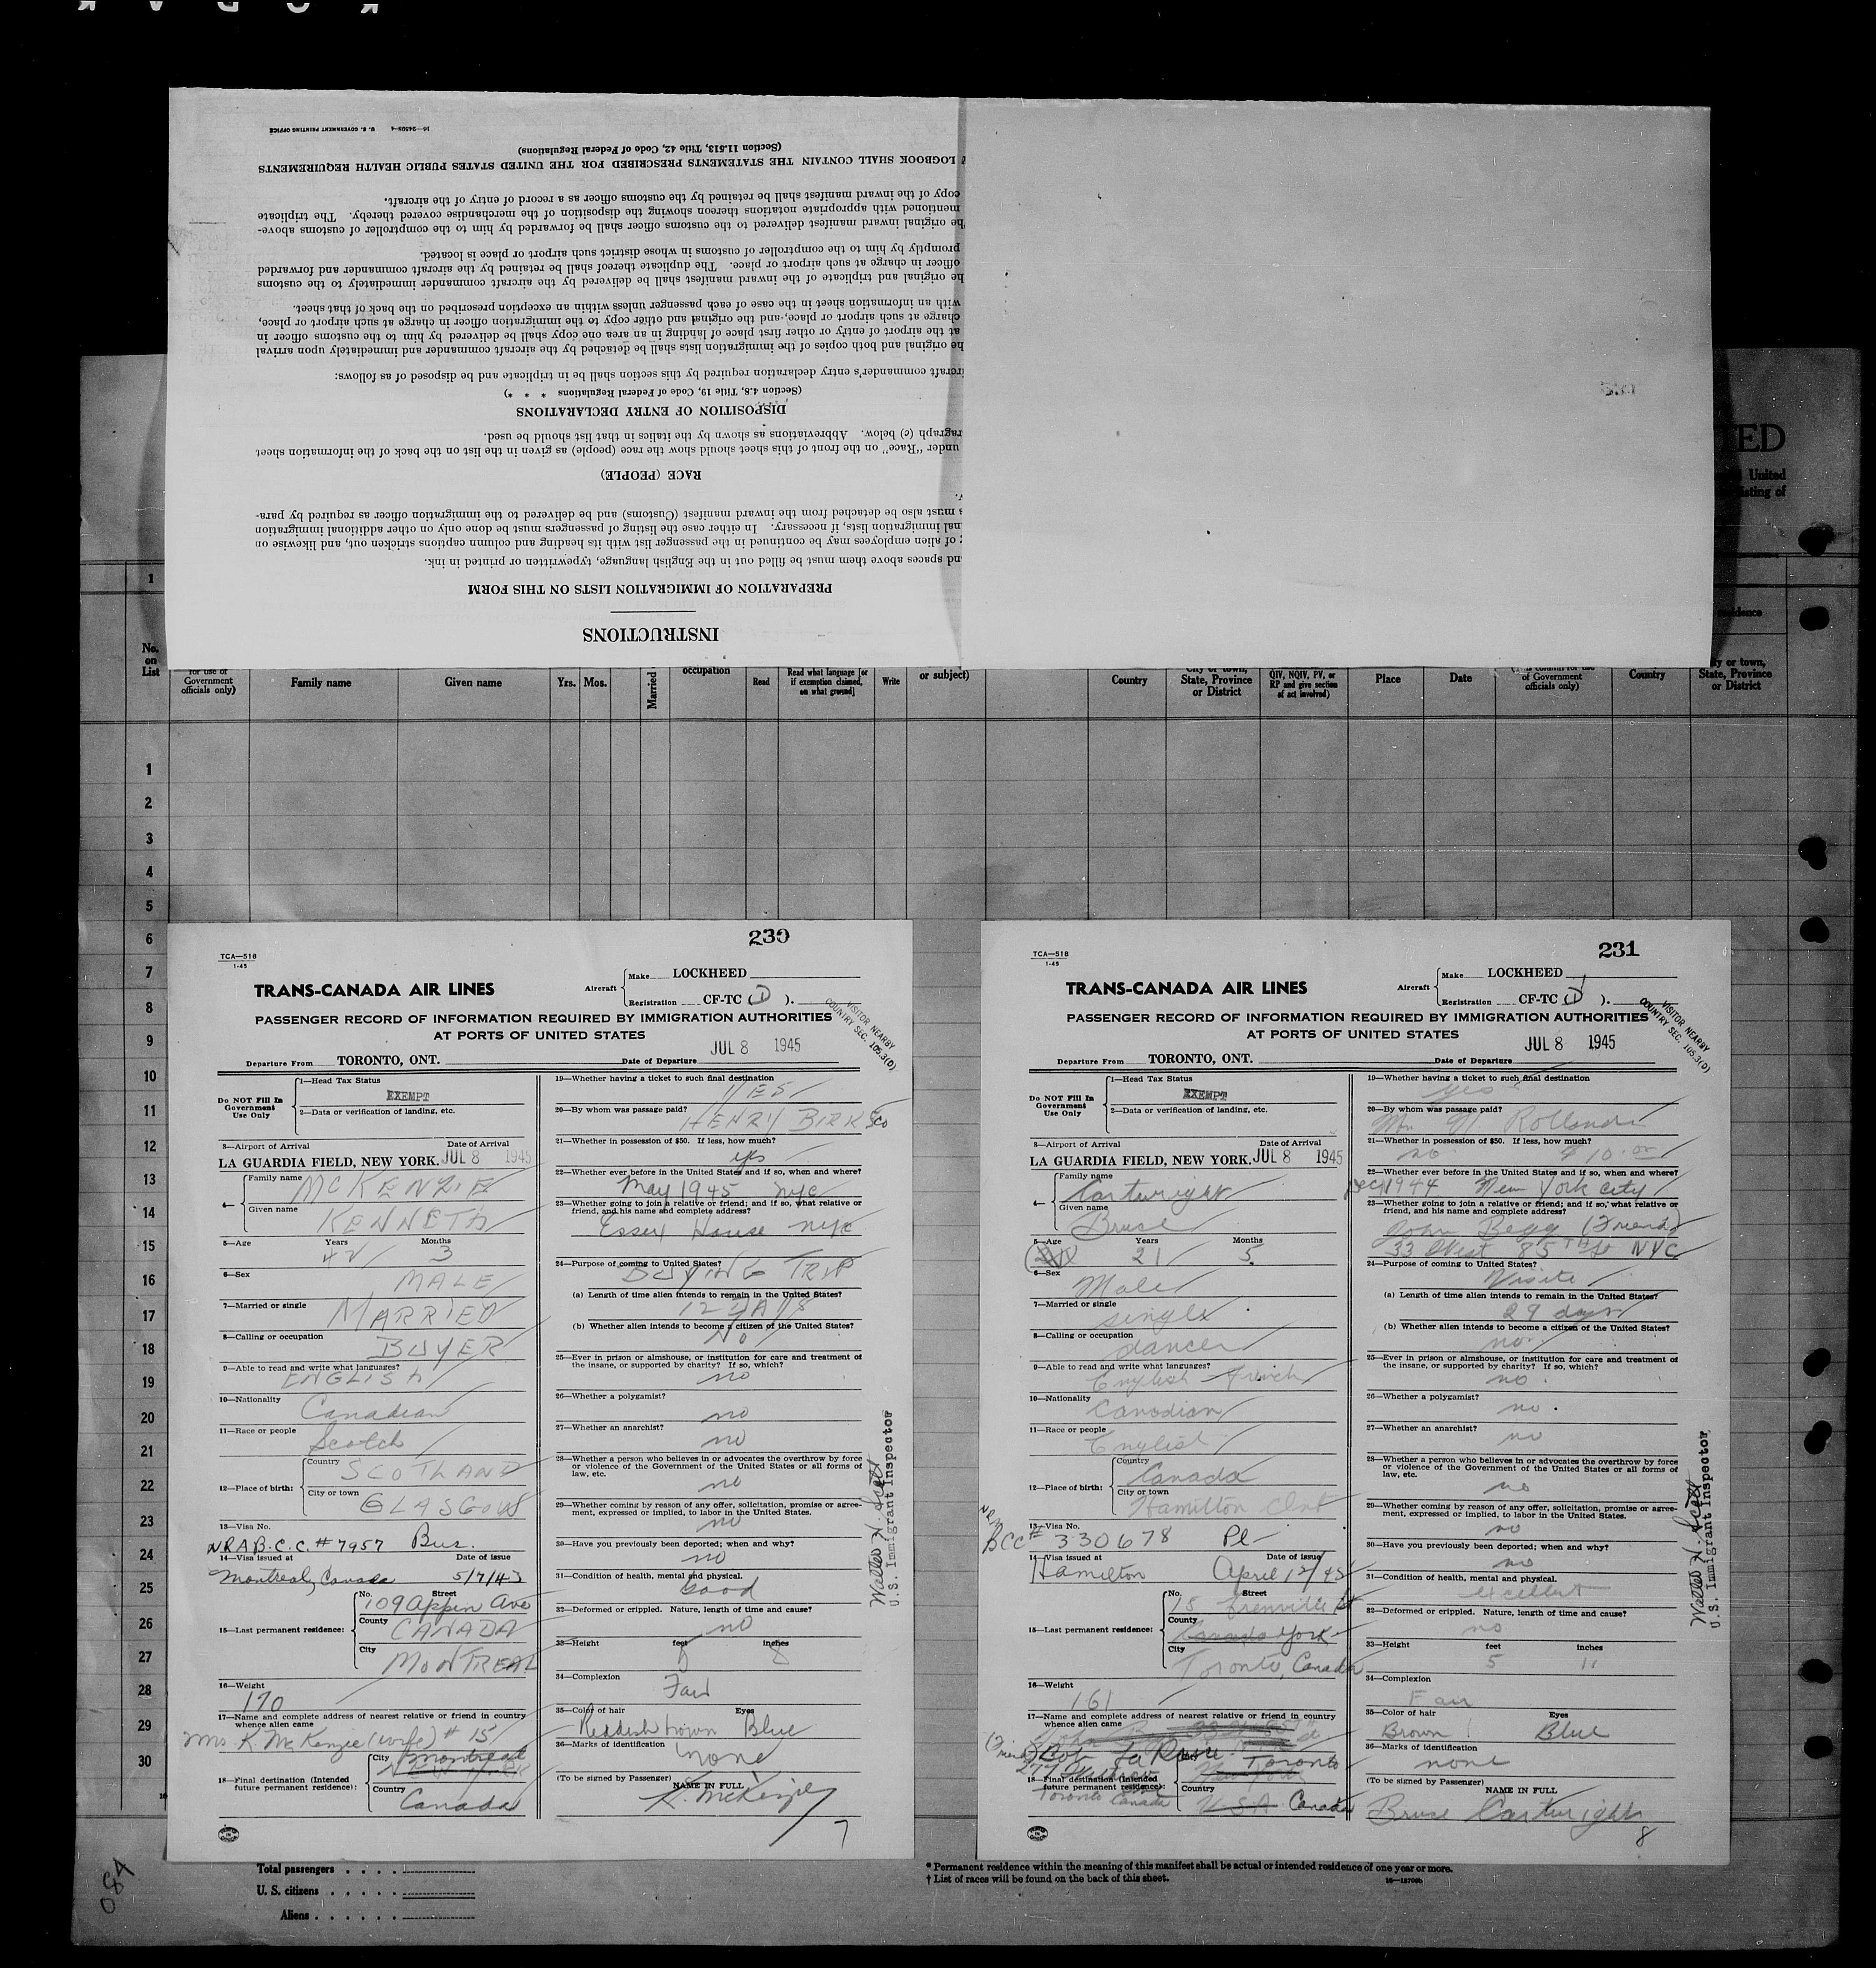 INSTRUCTIONS
PREPARATION OF IMMIGRATION LISTS ON THIS FORM
and spaces above them must be filled out in the English language, typewritten or printed in ink.
of alien employees may be continued in the passenger list with its heading and column captions stricken out, and likewise on
nal immigration lists, if necessary. In either case the listing of passengers must be done only on other additional immigration
s must also be detached from the inward manifest (Customs) and be delivered to the immigration officer as required by para-
RACE (PEOPLE)
under "Race" on the front of this sheet should show the race (people) as given in the list on the back of the information sheet
ragraph (c) below. Abbreviations as shown by the italics in that list should be used.
DISPOSITION OF ENTRY DECLARATIONS
(Section 4.8, Title 19, Code of Federal Regulations * * *)
ircraft commander's entry declaration required by this section shall be in triplicate and be disposed of as follows:
he original and both copies of the immigration lists shall be detached by the aircraft commander and immediately upon arrival
at the airport of entry or other first place of landing in an area one copy shall be delivered by him to the customs officer in
charge at such airport or place, and the original and other copy to the immigration officer in charge at such airport or place,
with an information sheet in the case of each passenger unless within an exception prescribed on the back of that sheet.
he original and triplicate of the inward manifest shall be delivered by the aircraft commander immediately to the customs
officer in charge at such airport or place. The duplicate thereof shall be retained by the aircraft commander and forwarded
promptly by him to the comptroller of customs in whose district such airport or place is located.
he original inward manifest delivered to the customs officer shall be forwarded by him to the comptroller of customs above-
mentioned with appropriate notations thereon showing the disposition of the merchandise covered thereby. The triplicate
copy of the inward manifest shall be retained by the customs officer as a record of entry of the aircraft.
LOGBOOK SHALL CONTAIN THE STATEMENTS PRESCRIBED FOR THE UNITED STATES PUBLIC HEALTH REQUIREMENTS
(Section 11.513, Title 42, Code of Federal Regulations)
16—24503-4 U. S. GOVERNMENT PRINTING OFFICE
TED
United
isting of
1
residence
No. on List
for use of Government officials only)
Family name
Given name
Yrs.
Mos.
Married
occupation
Read
Read what language [or if exemption claimed, on what ground]
Write
or subject)
Country
City or town, State, Province or District
QIV, NQIV, PV, or RP and give section of act involved)
Place
Date
of Government officials only)
Country
City or town, State, Province or District
1
2
3
4
5
6
7
8
9
10
11
12
13
14
15
16
17
18
19
20
21
22
23
24
25
26
27
28
29
30
230
TCA—518
1-45
TRANS-CANADA AIR LINES
Aircraft
Make LOCKHEED
Registration CF-TC (D).
PASSENGER RECORD OF INFORMATION REQUIRED BY IMMIGRATION AUTHORITIES
AT PORTS OF UNITED STATES
VISITOR NEARBY
COUNTRY SEC. 105.3(D)
JUL 8 1945
Departure From TORONTO, ONT. Date of Departure
Do NOT Fill In Government Use Only
1—Head Tax Status
EXEMPT
2—Data or verification of landing, etc.
3—Airport of Arrival Date of Arrival
LA GUARDIA FIELD, NEW YORK. JUL 8 1945
4— Family name MCKENZIE
Given name KENNETH
5—Age Years 42 Months 3
6—Sex MALE
7—Married or single MARRIED
8—Calling or occupation BUYER
9—Able to read and write what languages?
ENGLISH
10—Nationality Canadian
11—Race or people Scotch
12—Place of birth: Country SCOTLAND
City or town GLASGOW
13—Visa No.
NRABCC. # 7957 Bus.
14—Visa issued at Date of issue
Montreal, Canada 5/7/43
15—Last permanent residence: No. Street
109 Appin Ave
County CANADA
City MONTREAL
16—Weight 170
17—Name and complete address of nearest relative or friend in country whence alien came
Mrs K. McKenzie (wife) # 15
18—Final destination (Intended future permanent residence):
City Montreal
NEW YORK
Country Canada
19—Whether having a ticket to such final destination
YES
20—By whom was passage paid?
HENRY BIRKS Co
21—Whether in possession of $50. If less, how much?
yes
22—Whether ever before in the United States and if so, when and where?
May 1945 nyc
23—Whether going to join a relative or friend; and if so, what relative or friend, and his name and complete address?
Essex House nyc
24—Purpose of coming to United States?
BUYING TRIP
(a) Length of time alien intends to remain in the United States?
12 DAYS
(b) Whether alien intends to become a citizen of the United States?
No
25—Ever in prison or almshouse, or institution for care and treatment of the insane, or supported by charity? If so, which?
no
26—Whether a polygamist?
no
27—Whether an anarchist?
no
28—Whether a person who believes in or advocates the overthrow by force or violence of the Government of the United States or all forms of law, etc.
no
29—Whether coming by reason of any offer, solicitation, promise or agreement, expressed or implied, to labor in the United States.
no
30—Have you previously been deported; when and why?
no
31—Condition of health, mental and physical.
Good
32—Deformed or crippled. Nature, length of time and cause?
no
33—Height feet 5 inches 8
34—Complexion
Fair
35—Color of hair Eyes
Reddish brown Blue
36—Marks of identification
none
(To be signed by Passenger) NAME IN FULL
K. McKenzie
7
Walter H. Scott
U.S. Immigrant Inspector
231
TCA—518
1-45
TRANS-CANADA AIR LINES
Aircraft
Make LOCKHEED
Registration CF-TC (D).
PASSENGER RECORD OF INFORMATION REQUIRED BY IMMIGRATION AUTHORITIES
AT PORTS OF UNITED STATES
VISITOR NEARBY
COUNTRY SEC. 105.3(D)
JUL 8 1945
Departure From TORONTO, ONT. Date of Departure
Do NOT Fill In Government Use Only
1—Head Tax Status
EXEMPT
2—Data or verification of landing, etc.
3—Airport of Arrival Date of Arrival
LA GUARDIA FIELD, NEW YORK. JUL 8 1945
4— Family name Cartwright
Given name Bruce
5—Age Years 21 Months 5
6—Sex Male
7—Married or single single
8—Calling or occupation dancer
9—Able to read and write what languages?
English French
10—Nationality Canadian
11—Race or people English
12—Place of birth: Country Canada
City or town Hamilton Ont
13—Visa No.
BCC # 330678 Pl
14—Visa issued at Date of issue
Hamilton April 12/45
15—Last permanent residence: No. Street
75 Grenville St
County Canada York
City Toronto, Canada
16—Weight 161
17—Name and complete address of nearest relative or friend in country whence alien came
(Friend) Bob La Rose
277
Toronto Canada
18—Final destination (Intended future permanent residence):
City Toronto
New York
Country U.S.A Canada
19—Whether having a ticket to such final destination
yes
20—By whom was passage paid?
Rollands
21—Whether in possession of $50. If less, how much?
no $10.00
22—Whether ever before in the United States and if so, when and where?
Dec 1944 New York City
23—Whether going to join a relative or friend; and if so, what relative or friend, and his name and complete address?
John Begg (Friend)
33 West 85TH St NYC
24—Purpose of coming to United States?
Visite
(a) Length of time alien intends to remain in the United States?
29 days
(b) Whether alien intends to become a citizen of the United States?
no
25—Ever in prison or almshouse, or institution for care and treatment of the insane, or supported by charity? If so, which?
no
26—Whether a polygamist?
no
27—Whether an anarchist?
no
28—Whether a person who believes in or advocates the overthrow by force or violence of the Government of the United States or all forms of law, etc.
no
29—Whether coming by reason of any offer, solicitation, promise or agreement, expressed or implied, to labor in the United States.
no
30—Have you previously been deported; when and why?
no
31—Condition of health, mental and physical.
excellent
32—Deformed or crippled. Nature, length of time and cause?
no
33—Height feet 5 inches 11
34—Complexion
Fair
35—Color of hair Eyes
Brown Blue
36—Marks of identification
none
(To be signed by Passenger) NAME IN FULL
Bruce Cartwright
8
Walter H. Scott
U.S. Immigrant Inspector
084
Total passengers
U. S. citizens
Aliens
* Permanent residence within the meaning of this manifest shall be actual or intended residence of one year or more.
† List of races will be found on the back of this sheet.